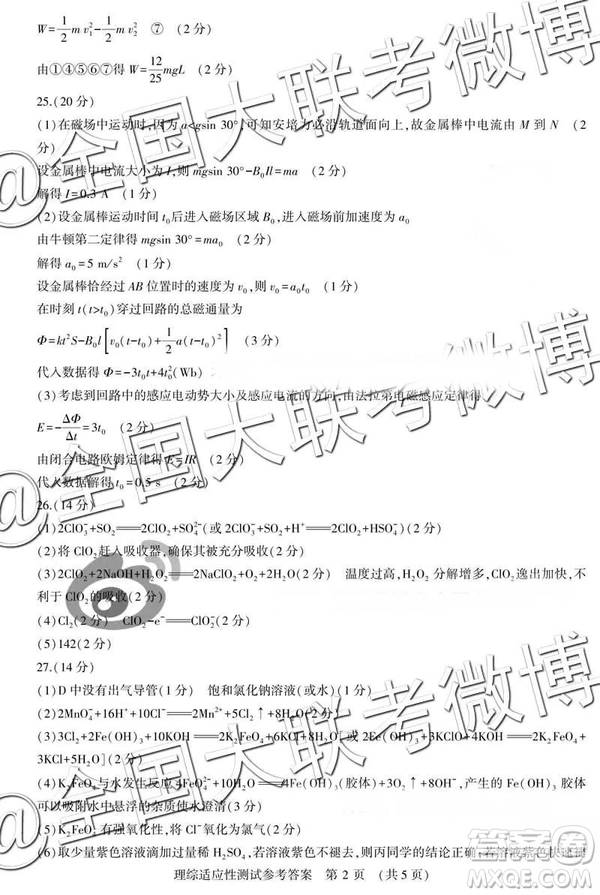 W=1/2 m v₁²-1/2 m v₂² ⑦ (2分)
由①④⑤⑥⑦得 W=12/25 mgL (2分)
25.(20分)
(1)在磁场中运动时,因为 a<gsin 30°,可知安培力必沿轨道面向上,故金属棒中电流由 M 到 N (2
分)
设金属棒中电流大小为 I,则 mgsin 30°-B₀Il=ma (2分)
解得 I=0.3 A (2分)
(2)设金属棒运动时间 t₀后进入磁场区域 B₀,进入磁场前加速度为 a₀
由牛顿第二定律得 mgsin 30°=ma₀ (2分)
解得 a₀=5 m/s² (2分)
设金属棒恰经过 AB 位置时的速度为 v₀,则 v₀=a₀t₀ (2分)
在时刻 t(t>t₀)穿过回路的总磁通量为
Φ=kt²S-B₀l[v₀(t-t₀)+1/2 a(t-t₀)²] (3分)
代入数据得 Φ=-3t₀t+4t₀²(Wb)
(3)考虑到回路中的感应电动势大小及感应电流的方向,由法拉第电磁感应定律得
E=-ΔΦ/Δt=3t₀ (2分)
由闭合电路欧姆定律得 E=IR (2分)
代入数据解得 t₀=0.5 s (2分)
26.(14分)
(1)2ClO₃⁻+SO₂══2ClO₂+SO₄²⁻(2分)(或2ClO₃⁻+SO₂+H⁺══2ClO₂+HSO₄⁻)(2分)
(2)将 ClO₂赶入吸收器,确保其被充分吸收(2分)
(3)2ClO₂+2NaOH+H₂O₂══2NaClO₂+O₂+2H₂O(2分) 温度过高,H₂O₂分解增多,ClO₂逸出加快,不
利于 ClO₂的吸收(2分)
(4)Cl₂(2分) ClO₂-e⁻══ClO₂(2分)
(5)142(2分)
27.(14分)
(1)D中没有出气导管(1分) 饱和氯化钠溶液(或水)(1分)
(2)2MnO₄⁻+16H⁺+10Cl⁻══2Mn²⁺+5Cl₂↑+8H₂O(2分)
(3)3Cl₂+2Fe(OH)₃+10KOH══2K₂FeO₄+6KCl+8H₂O[或 3KClO+2Fe(OH)₃+4KOH══2K₂FeO₄+
3KCl+5H₂O](2分)
(4)K₂FeO₄与水发生反应 4K₂FeO₄+10H₂O══4Fe(OH)₃(胶体)+3O₂↑+8OH⁻,产生的 Fe(OH)₃胶体
可以吸附水中悬浮的杂质使水澄清(3分)
(5)K₂FeO₄有强氧化性,将Cl⁻氧化为氯气(2分)
(6)取少量紫色溶液滴加过量稀 H₂SO₄,若溶液紫色不褪去,则丙同学的结论正确,若溶液紫色快速褪
理综适应性测试参考答案 第 2 页 (共 5 页)
@全国大联考微博
@全国大联考微博
@全国大联考微博